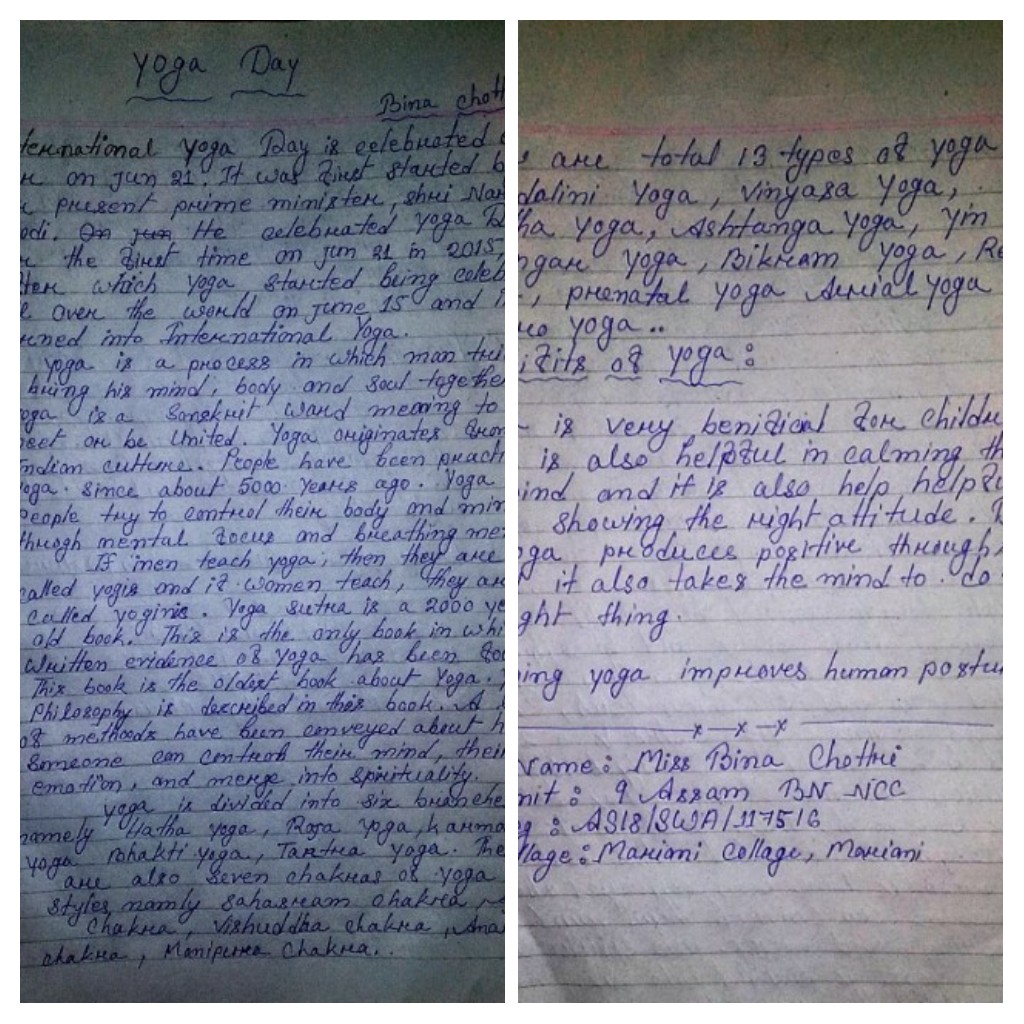 Yoga Day
Bina chott
ternational Yoga Day is celebrated
on jun 21. It was first started b
present prime minister, shri Nar
odi. On jun He celebrated yoga D
the first time on jun 21 in 2015,
ter which yoga started being celeb
over the world on june 15 and i
rned into International Yoga.
yoga is a process in which man tri
bring his mind, body and soul togethe
oga is a Sanskrit ward meaning to
eet or be United. Yoga originates from
ndian culture. People have been practi
oga. Since about 5000 years ago. Yoga
eople try to control their body and min
throgh mental focus and breathing me
If men teach yoga, then they are
called yogis and if women teach, they ar
called yoginis. Yoga sutra is a 2000 ye
old book. This is the only book in whi
written evidence of Yoga has been fou
This book is the oldest book about Yoga.
Philosophy is described in this book. A
of methods have been conveyed about h
someone can control their mind, their
emotion, and merge into spirituality.
yoga is divided into six branche
namely Hatha yoga, Raja yoga, karma
yoga bhakti yoga, Tantra yoga. The
are also seven chakras of yoga
styles, namly sahasram chakra
chakra, Vishuddha chakra, Ana
chakra, Manipura Chakra..
are total 13 types of yoga
dalini Yoga, vinyasa Yoga,
ha yoga, Ashtanga yoga, yin
ngar yoga, Bikram yoga, Re
, prenatal yoga Aerial yoga
ro yoga..
ifits of yoga:
is very benifical for childr
is also helpful in calming th
ind and it is also help helpfu
showing the right attitude.
oga produces positive through,
it also takes the mind to do
ght thing.
ing yoga improves human postur
x — x — x
Name: Miss Bina Chottri
nit: 9 Assam BN NCC
g: AS18/SWA/117516
llage: Mariani collage, Mariani